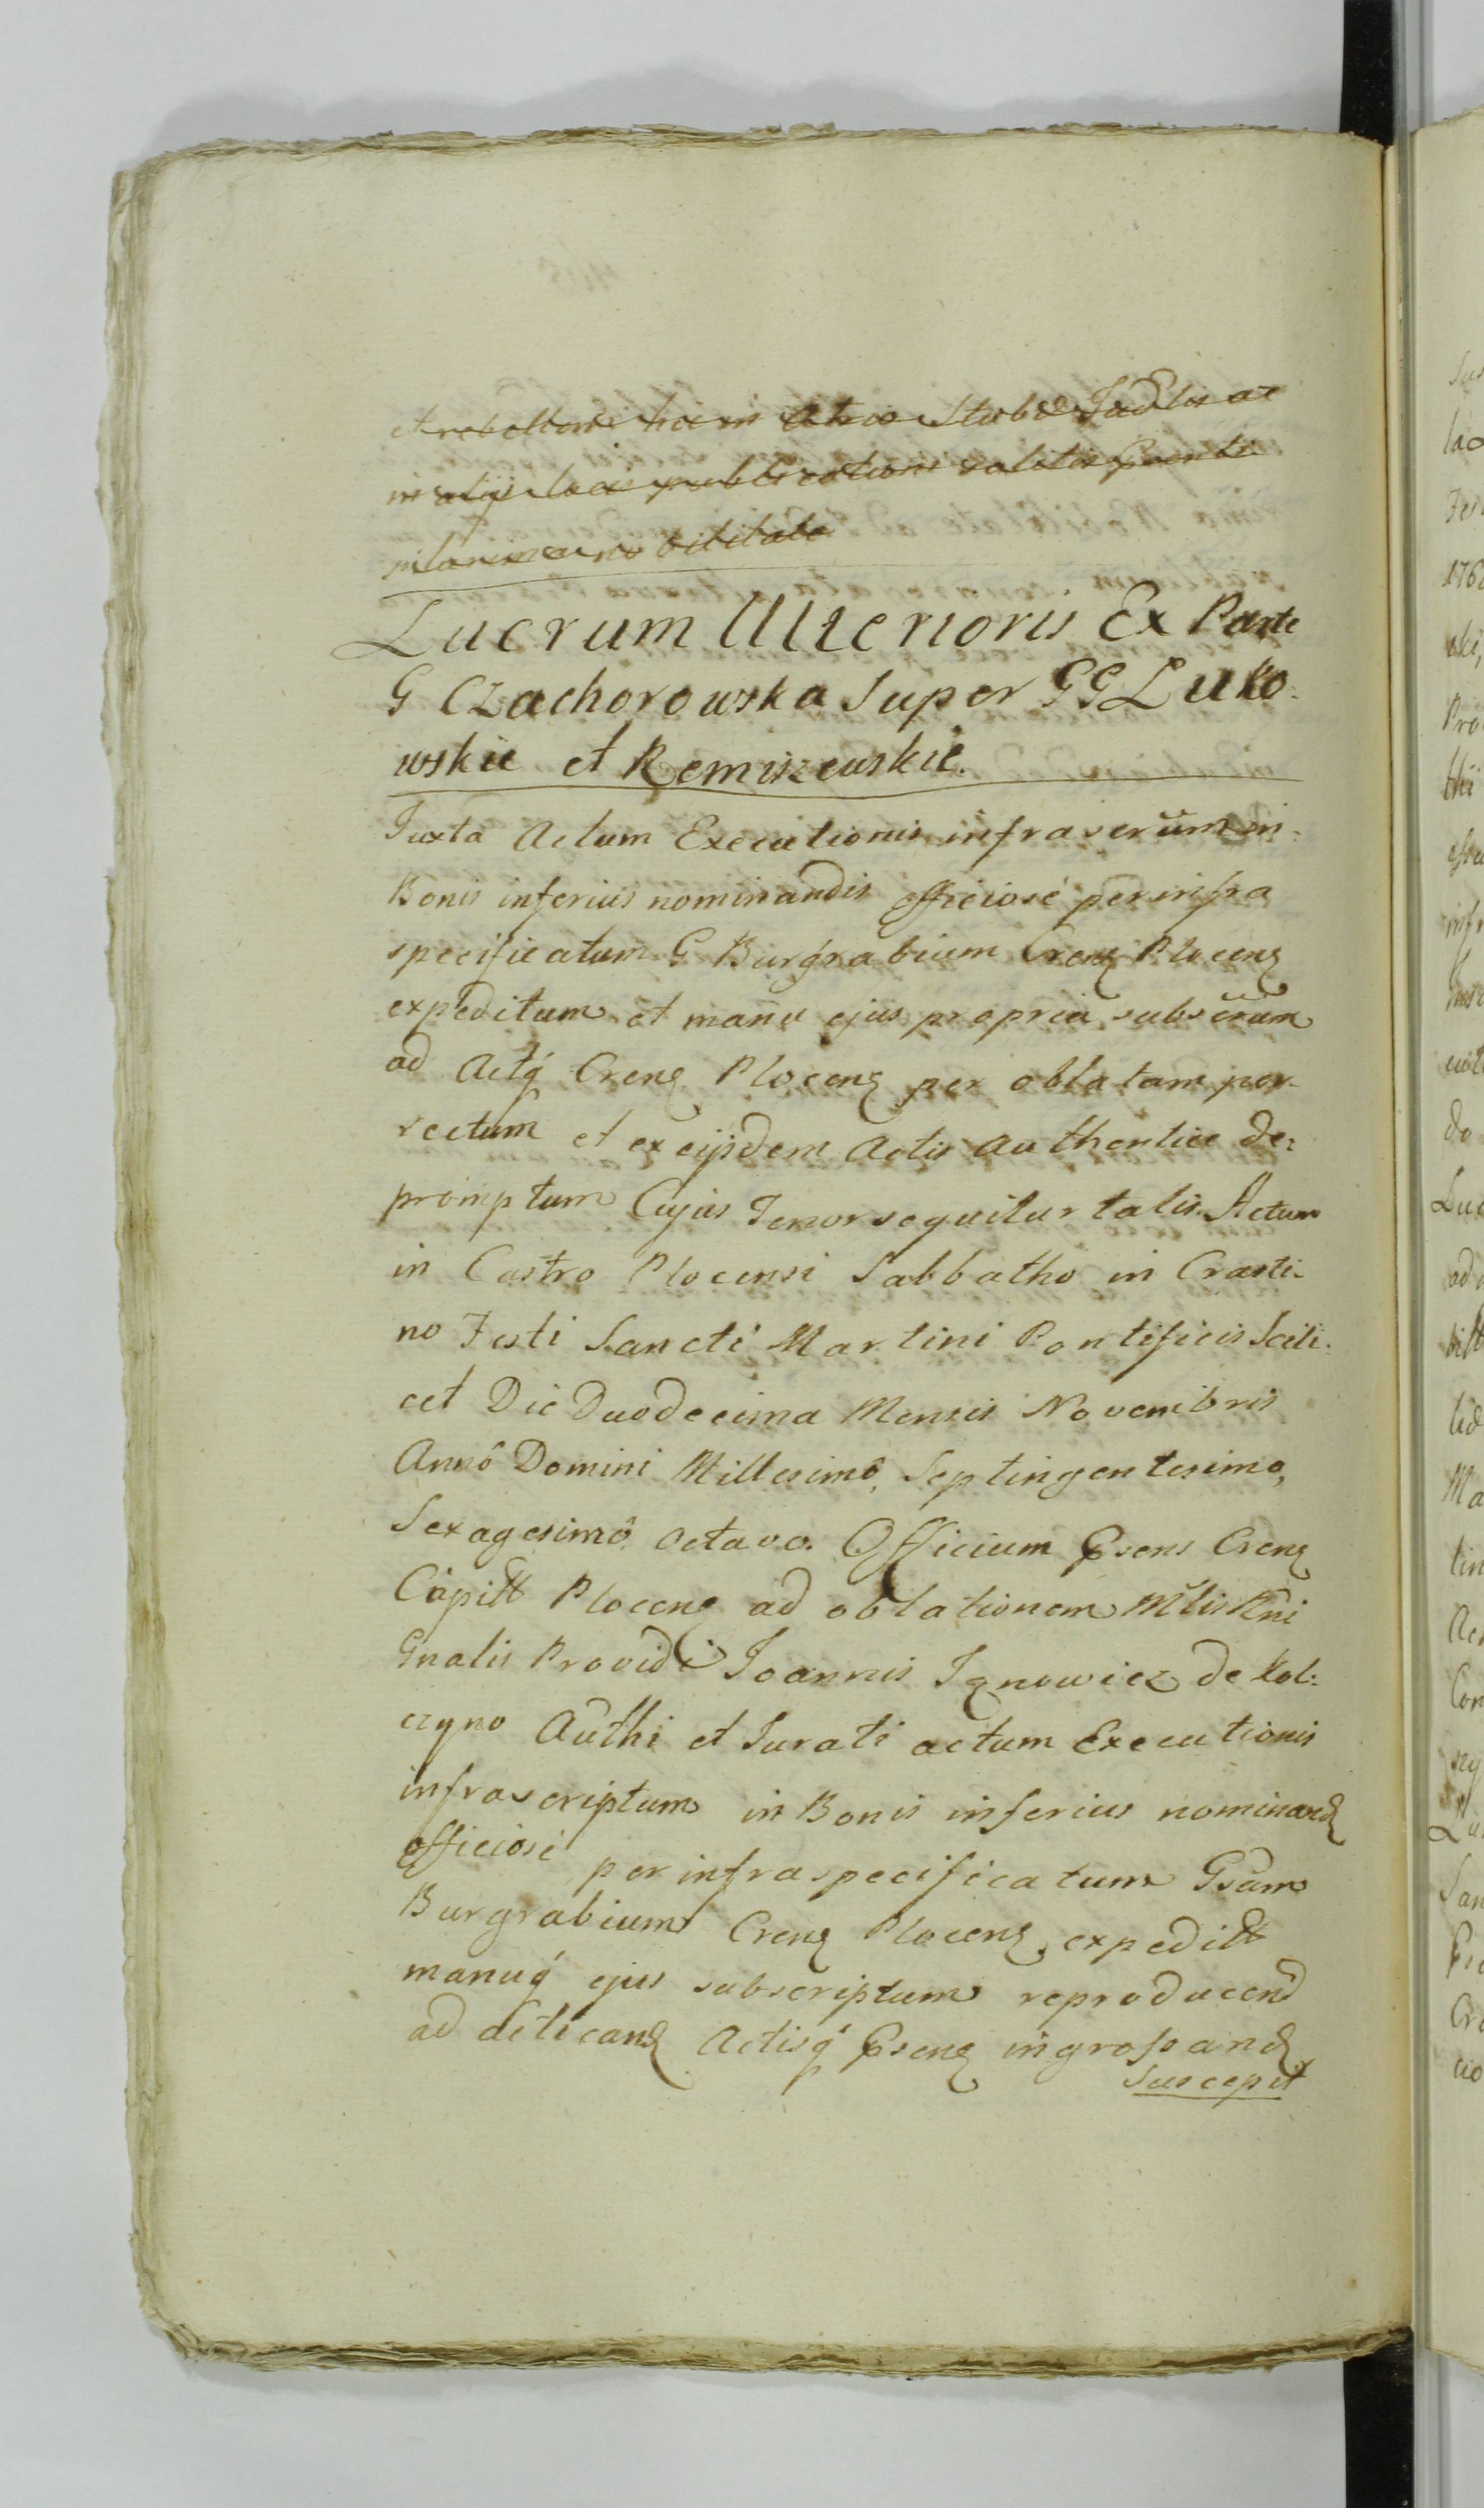 et rebellione hic in Atrio Stubae Judlis ac
in alijs locis publicationi solitis Psente
in Tanina nobilitate
Lucrum Ulterioris Ex Parte
G Czachorowska Super GG Luko-
wskie et Remiszewskie.
Juxta Actum Executionis infrascrium in
Bonis inferius nominandis officiosé per infra
specificatum G Burgrabium Crenẽ Plocenẽ
expeditum et manu ejus propria subscrium
ad Actq́ Crenẽ Plocenẽ per oblatam por-
rectum et ex eijsdem Actis authentice de-
promptum Cujus Tenor sequitur talis. Actum
in Castro Plocensi Sabbatho in Crasti-
no Festi Sancti Martini Pontificis Scili-
cet Die Duodecima Mensis Novembris
Annô Domini Millesimô, Septingentesimo,
Sexagesimô octavo. Officium Psens Crenẽ
Capitt Plocenẽ ad oblationem Mlis Rni
Gnalis Providi Joannis de Kol-
czyno Authi et Jurati actum Executionis
infrascriptum in Bonis inferius nominand
officiosé per infraspecificatum Gsum
Burgrabium Crenẽ Plocenẽ expeditt
manuq́ ejus subscriptum reproducend
ad acticand Actisq́ Psenẽ ingrossand
Suscepit